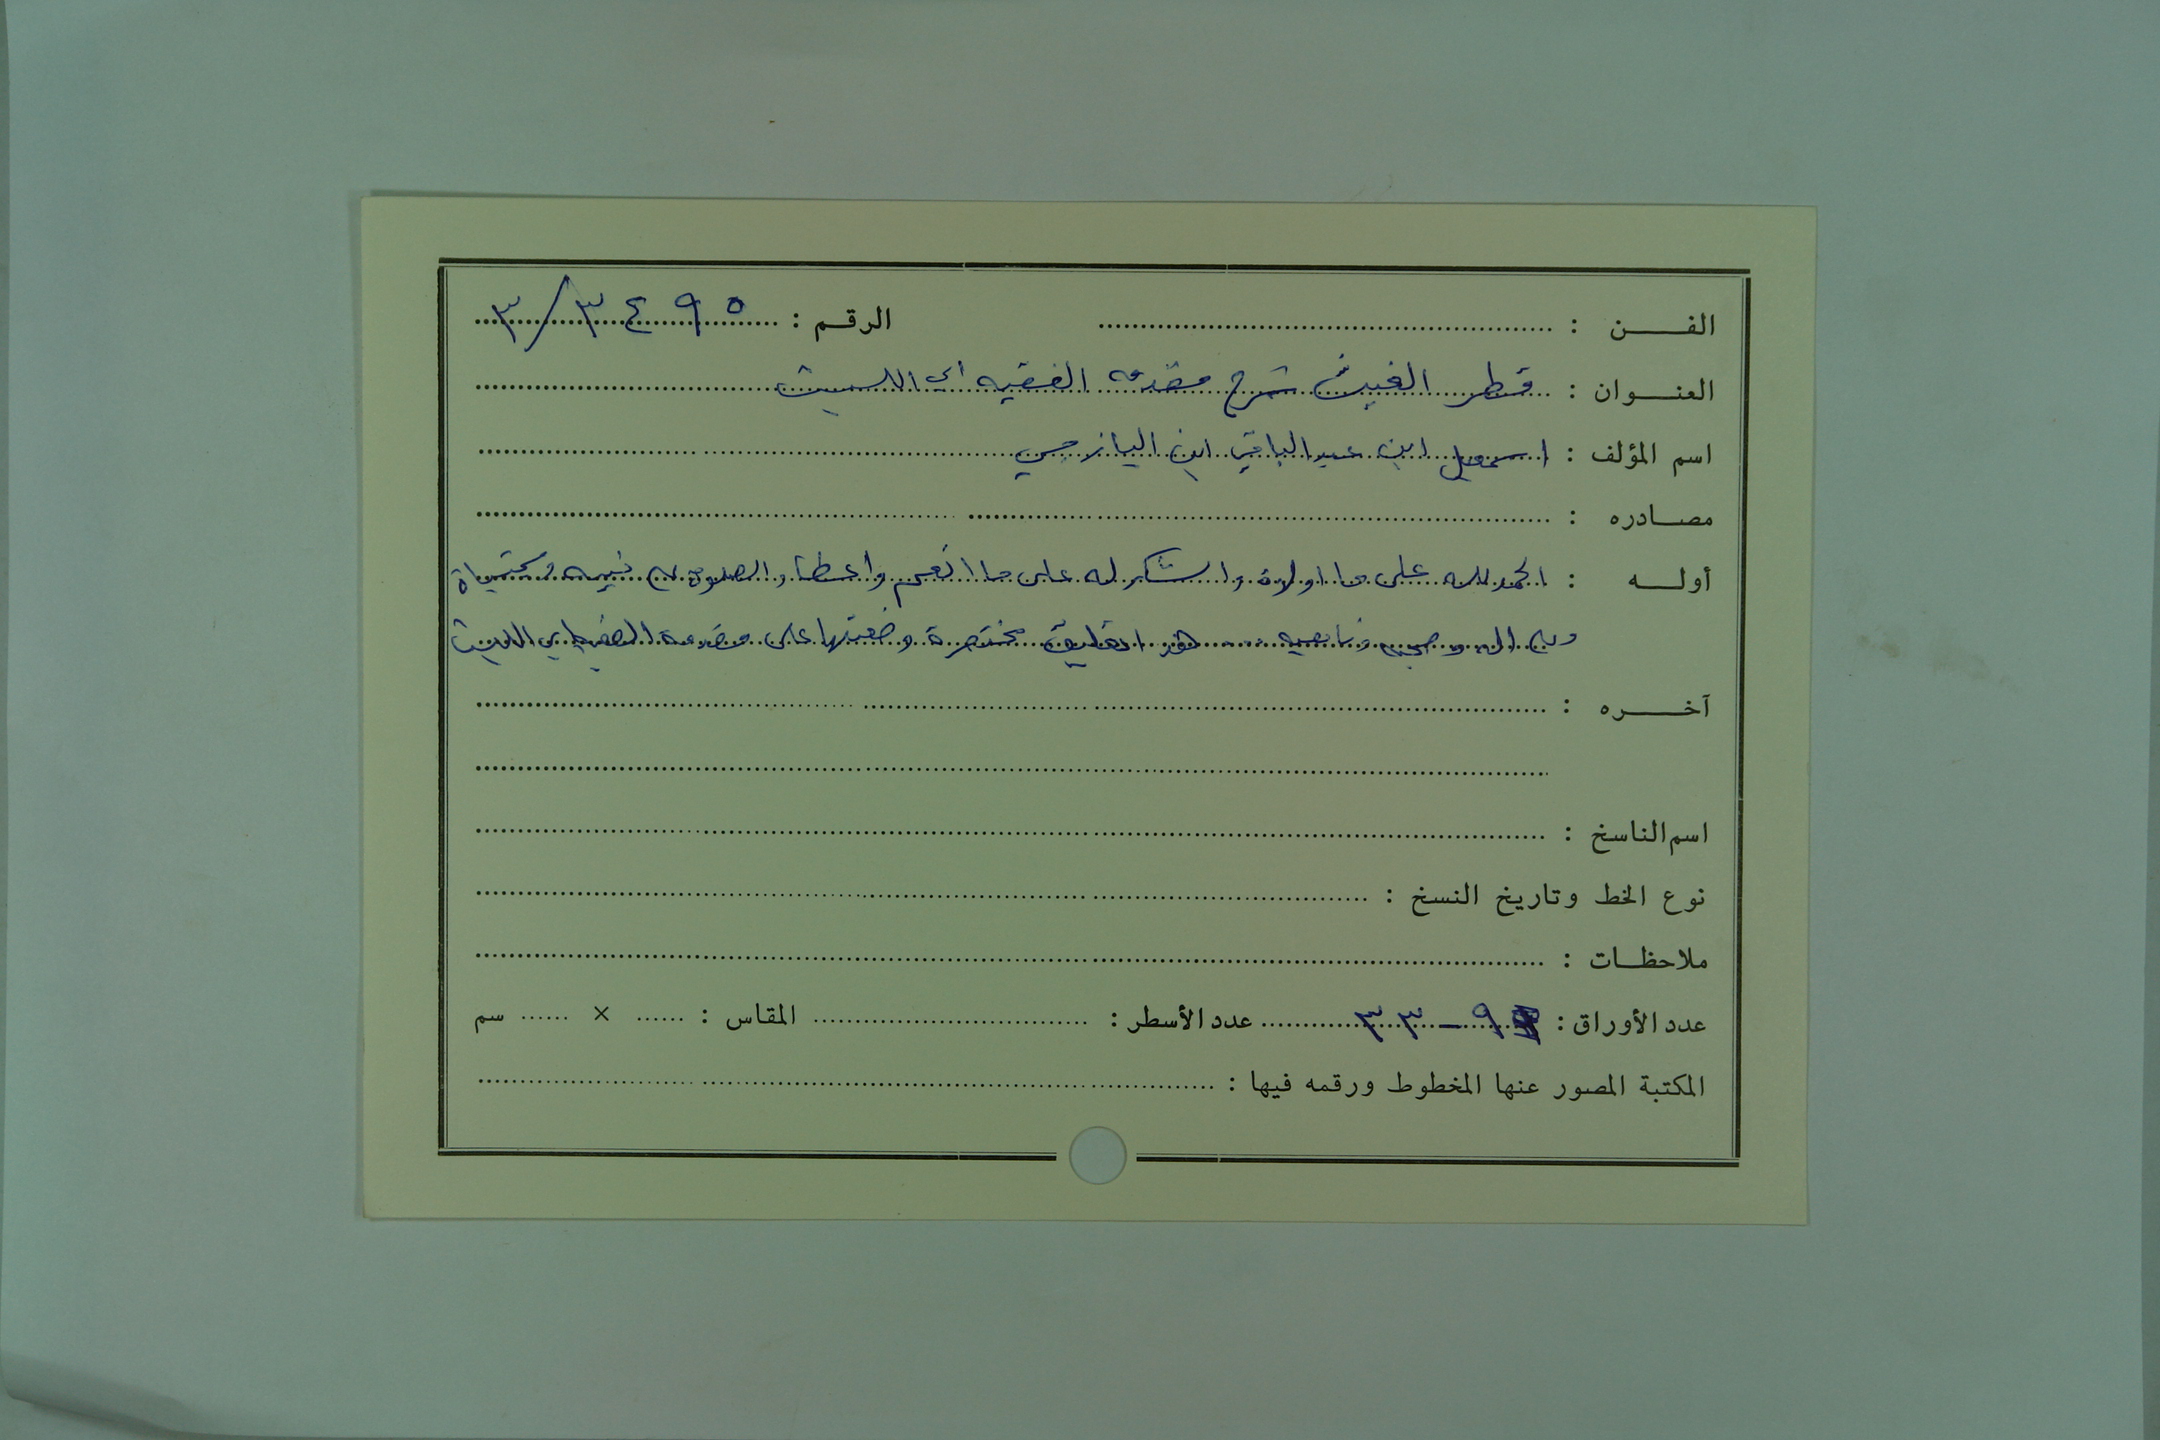 الفن : الرقم : ٣٤٩٥/٣
العنوان : قطر الغيث شرح مقدمه الفقيه أبى الليث
اسم المؤلف : اسمعيل ابن عبد الباقي ابن اليازجي
مصادره :
أوله : الحمد لله على ما اولاه والشكر له على ما انعم واعطا والصلوة على نبيه ومجتباه
وعلى اله وصحبه وتابعيه .... هذا تعليقة مختصرة وضعتها على مقدمة الفقيه ابي الليث
آخره :
اسم الناسخ :
نوع الخط وتاريخ النسخ :
ملاحظات :
عدد الأوراق : ٩ - ٣٣ عدد الأسطر : المقاس : × سم
المكتبة المصور عنها المخطوط ورقمه فيها :